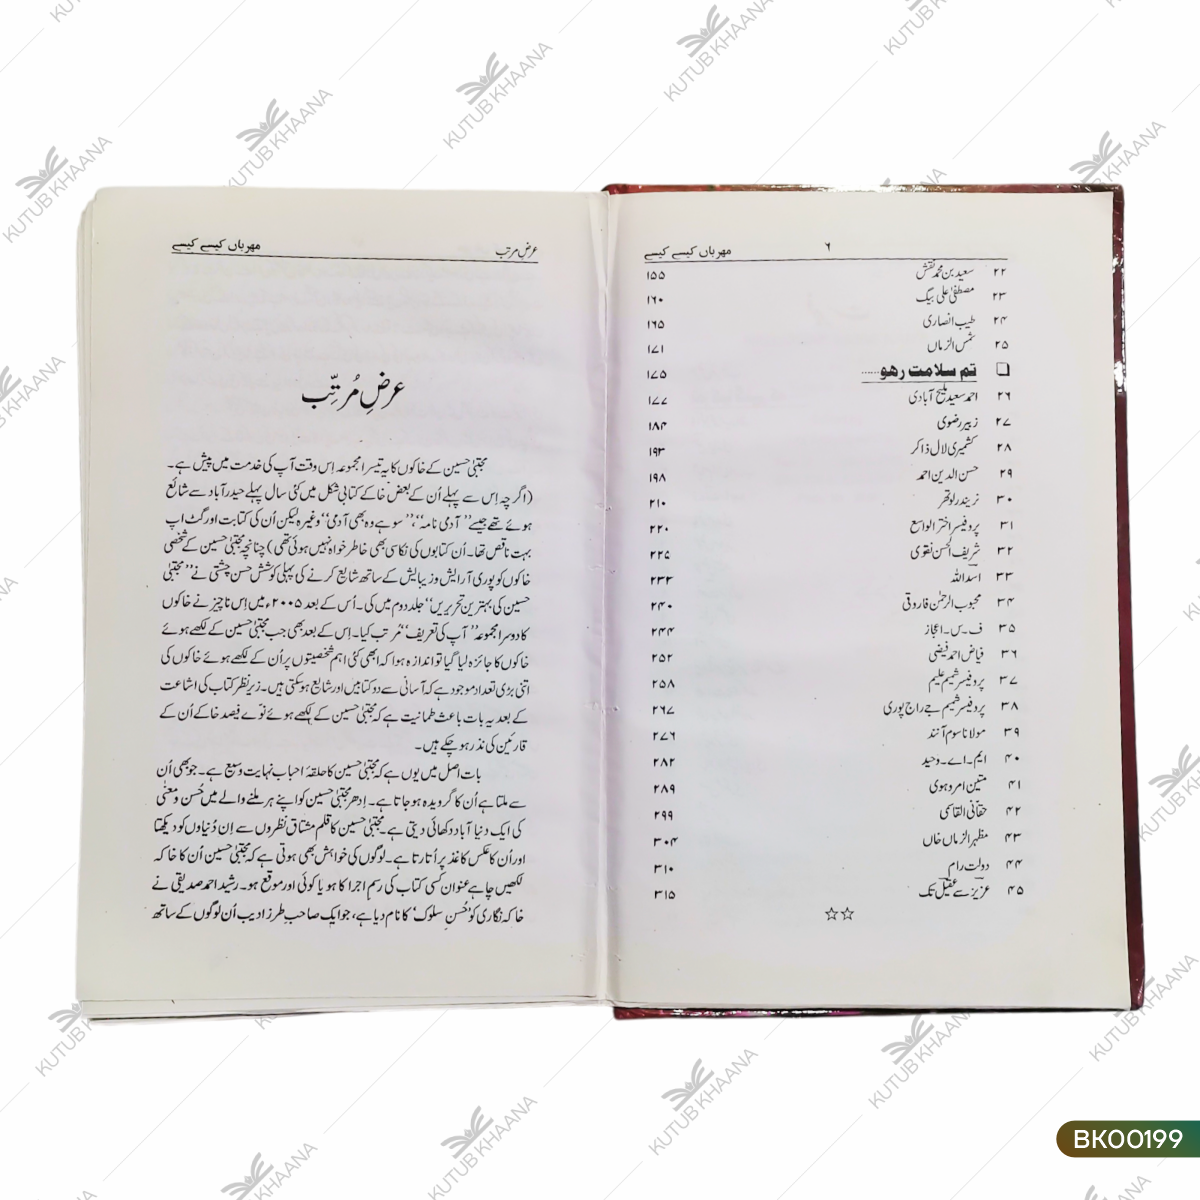 مہرباں کیسے کیسے ۶
۲۲ سعید بن محمد نقش ۱۵۵
۲۳ مصطفیٰ علی بیگ ۱۶۰
۲۴ طیب انصاری ۱۶۵
۲۵ شمس الزماں ۱۷۱
❑ تم سلامت رھو...... ۱۷۵
۲۶ احمد سعید ملیح آبادی ۱۷۷
۲۷ زبیر رضوی ۱۸۴
۲۸ کشمیری لال ذاکر ۱۹۳
۲۹ حسن الدین احمد ۱۹۸
۳۰ نریندر لوتھر ۲۱۰
۳۱ پروفیسر اختر الواسع ۲۲۰
۳۲ شریف الحسن نقوی ۲۲۵
۳۳ اسد اللہ ۲۳۲
۳۴ محبوب الرحمٰن فاروقی ۲۴۰
۳۵ ف۔س۔اعجاز ۲۴۴
۳۶ فیاض احمد فیضی ۲۵۲
۳۷ پروفیسر شمیم علیم ۲۵۸
۳۸ پروفیسر شمیم جے راج پوری ۲۶۷
۳۹ مولانا سوم آنند ۲۷۶
۴۰ ایم۔اے۔وحید ۲۸۲
۴۱ متین امروہوی ۲۸۹
۴۲ حقانی القاسمی ۲۹۹
۴۳ مظہر الزماں خاں ۳۰۴
۴۴ دولت رام ۳۱۰
۴۵ عزیز سے عقیل تک ۳۱۵
☆☆
عرض مرتب مہرباں کیسے کیسے
عرضِ مُرتّب
مجتبیٰ حسین کے خاکوں کا یہ تیسرا مجموعہ اِس وقت آپ کی خدمت میں پیش ہے۔
(اگرچہ اِس سے پہلے اُن کے بعض خاکے کتابی شکل میں کئی سال پہلے حیدرآباد سے شائع
ہوئے تھے جیسے "آدمی نامہ"، "سو ہے وہ بھی آدمی" وغیرہ لیکن اُن کی کتابت اور گٹ اپ
بہت ناقص تھا۔ اُن کتابوں کی نکاسی بھی خاطر خواہ نہیں ہوئی تھی) چنانچہ مجتبیٰ حسین کے شخصی
خاکوں کو پوری آرایش و زیبایش کے ساتھ شایع کرنے کی پہلی کوشش حسن چشتی نے "مجتبیٰ
حسین کی بہترین تحریریں" جلد دوم میں کی۔ اُس کے بعد ۲۰۰۵ء میں اِس ناچیز نے خاکوں
کا دوسرا مجموعہ "آپ کی تعریف" مُرتب کیا۔ اِس کے بعد بھی جب مجتبیٰ حسین کے لکھے ہوئے
خاکوں کا جائزہ لیا گیا تو اندازہ ہوا کہ ابھی کئی اہم شخصیتوں پر اُن کے لکھے ہوئے خاکوں کی
اتنی بڑی تعداد موجود ہے کہ آسانی سے دو کتابیں اور شایع ہو سکتی ہیں۔ زیرِ نظر کتاب کی اشاعت
کے بعد یہ بات باعث طمانیت ہے کہ مجتبیٰ حسین کے لکھے ہوئے نوّے فیصد خاکے اُن کے
قارئین کی نذر ہو چکے ہیں۔
بات اصل میں یوں ہے کہ مجتبیٰ حسین کا حلقۂ احباب نہایت وسیع ہے۔ جو بھی اُن
سے ملتا ہے اُن کا گرویدہ ہو جاتا ہے۔ اِدھر مجتبیٰ حسین کو اپنے ہر ملنے والے میں حُسن و معنٰی
کی ایک دنیا آباد دکھائی دیتی ہے۔ مجتبیٰ حسین کا قلم مشتاق نظروں سے اِن دُنیاوں کو دیکھتا
اور اُن کا عکس کاغذ پر اُتارتا ہے۔ لوگوں کی خواہش بھی ہوتی ہے کہ مجتبیٰ حسین اُن کا خاکہ
لکھیں چاہے عنوان کسی کتاب کی رسمِ اجرا کا ہو یا کوئی اور موقع ہو۔ رشید احمد صدیقی نے
خاکہ نگاری کو 'حُسنِ سلوک' کا نام دیا ہے، جو ایک صاحبِ طرز ادیب اُن لوگوں کے ساتھ
KUTUB KHAANA
BK00199